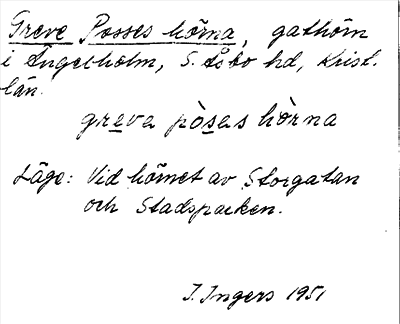 Greve Posses hörna, gathörn
i Ängelholm, S. Åsbo hd, Krist.
län.
greva pòsas hö̀rna
Läge: Vid hörnet av Storgatan
och Stadsparken.
I. Ingers 1951